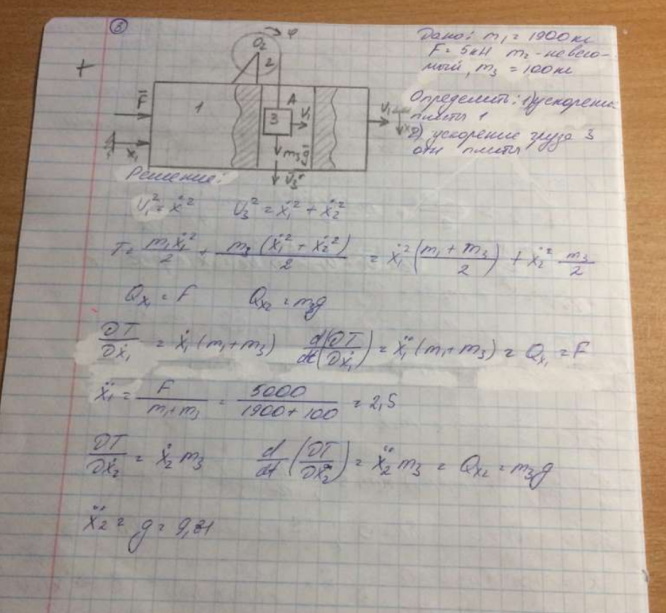 5
Дано: m₁ = 1900 кг
F = 5 кН m₂ - невесо-
мый, m₃ = 100 кг
Определить: 1) ускорение
плиты 1
2) ускорение груза 3
отн плиты
+
O₂ φ
2
F̄ 1 A
3 V₁ V₁
x₁ m₃ḡ x₂
V̄₃ʳ
Решение:
V₁² = ẋ² V₃² = ẋ₁² + ẋ₂²
T = m₁ẋ₁²/2 + m₃(ẋ₁² + ẋ₂²)/2 = ẋ₁²(m₁ + m₃/2) + ẋ₂² m₃/2
Qx₁ = F Qx₂ = m₃g
∂T/∂ẋ₁ = ẋ₁(m₁+m₃) d/dt(∂T/∂ẋ₁) = ẍ₁(m₁+m₃) = Qx₁ = F
ẍ₁ = F/(m₁+m₃) = 5000/(1900+100) = 2,5
∂T/∂ẋ₂ = ẋ₂m₃ d/dt(∂T/∂ẋ₂) = ẍ₂m₃ = Qx₂ = m₃g
ẍ₂ = g = 9,81